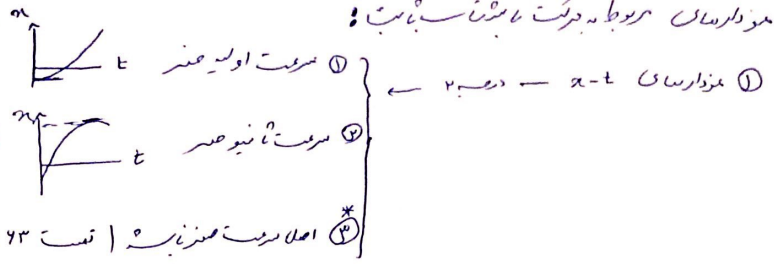 نمودارهای مربوط به حرکت با شتاب ثابت :
① نمودارهای x-t — درجه ۲ ←
① سرعت اولیه صفر
x
t
② سرعت ثانویه صفر
x
t
③* اصلا سرعت صفر نباشه | تست ۶۳